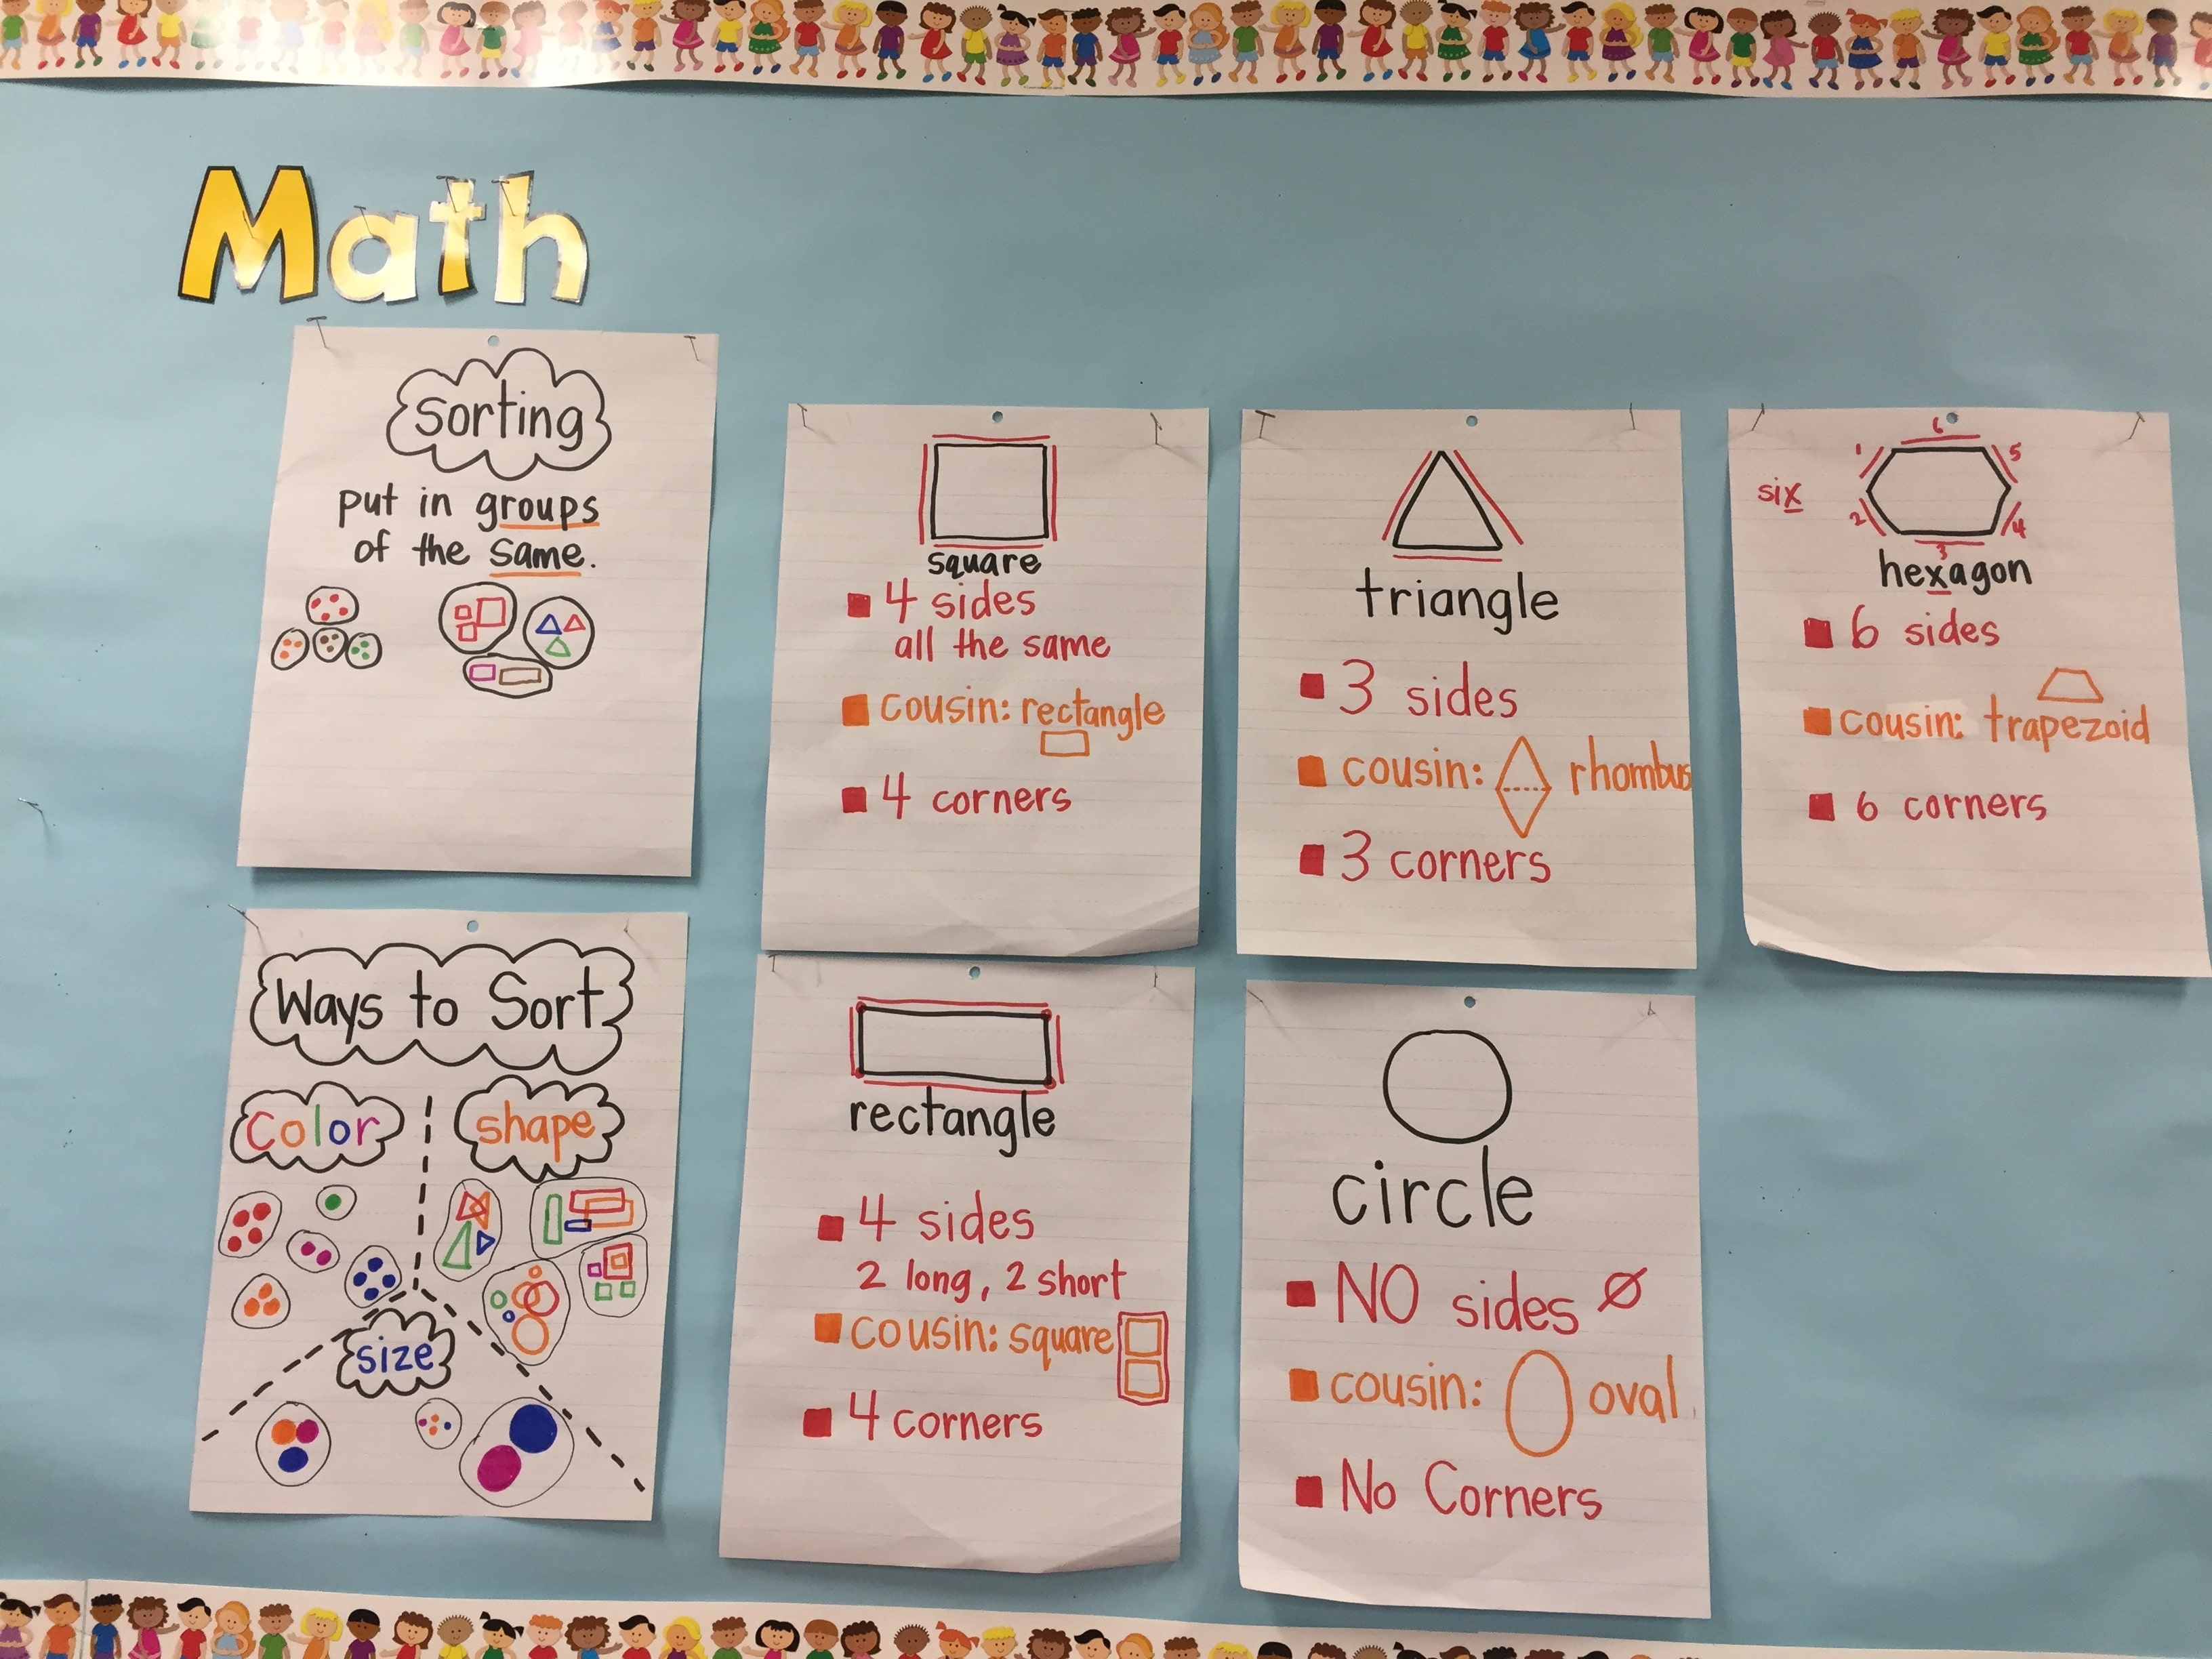 Math
Sorting
put in groups
of the same.
Ways to Sort
color
shape
size
square
4 sides
all the same
cousin: rectangle
4 corners
rectangle
4 sides
2 long, 2 short
cousin: square
4 corners
triangle
3 sides
cousin: rhombus
3 corners
circle
NO sides Ø
cousin: oval
No Corners
6
1 5
six
2 4
3
hexagon
6 sides
cousin: trapezoid
6 corners